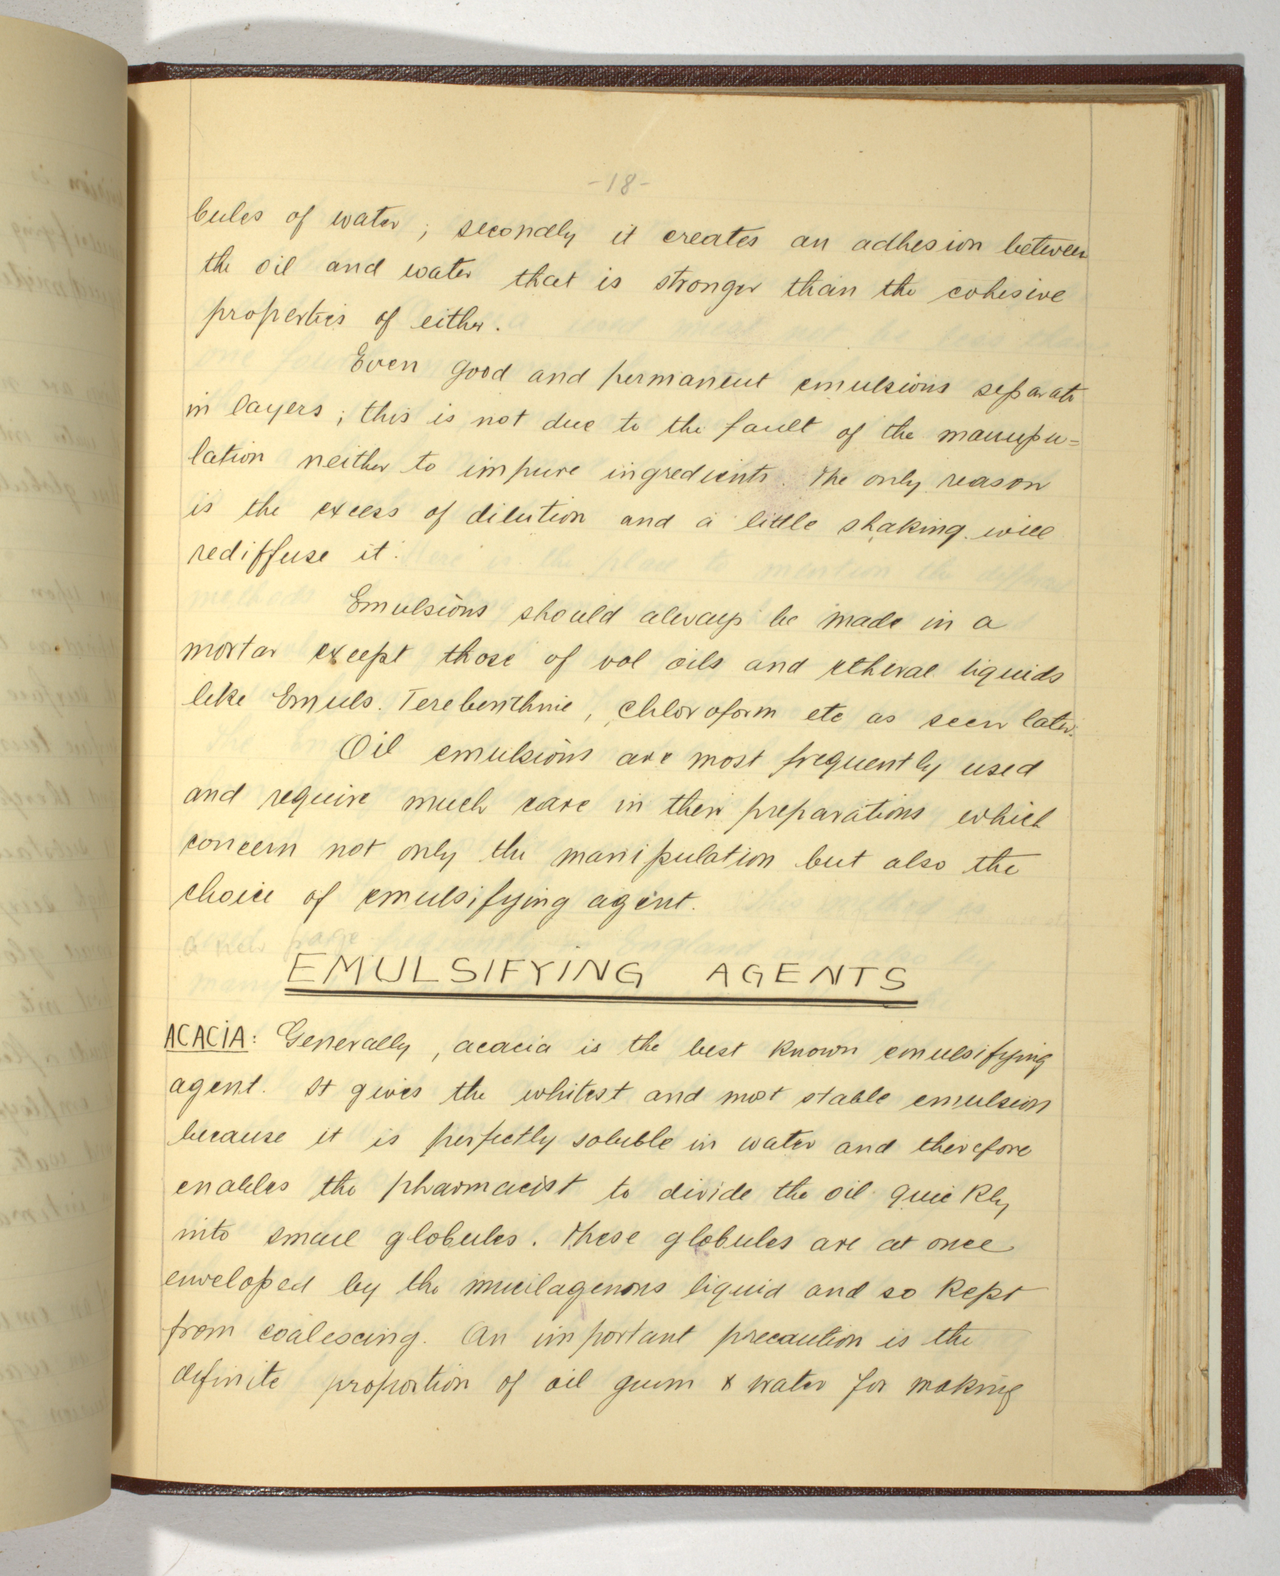 -18-
bules of water ; secondly it creates an adhesion between
the oil and water that is stronger than the cohesive
properties of either.
Even good and permanent emulsions separate
in layers ; this is not due to the fault of the manupu=
lation neither to impure ingredients. The only reason
is the excess of dilution and a little shaking will
rediffuse it.
Emulsions should always be made in a
mortar except those of vol oils and etheral liquids
like Emuls. Terebenthnie, chloroform etc as seen later.
Oil emulsions are most frequently used
and require much care in their preparations which
concern not only the manipulation but also the
choice of emulsifying agent.
EMULSIFYING AGENTS
ACACIA: Generally, acacia is the best known emulsifying
agent. It gives the whitest and most stable emulsion
because it is perfectly soluble in water and therefore
enables the pharmacist to divide the oil quickly
into small globules. These globules are at once
enveloped by the mucilagenous liquid and so kept
from coalescing. An important precaution is the
definite proportion of oil gum & water for making